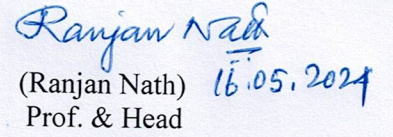 Ranjan Nath
(Ranjan Nath) 16.05.2024
Prof. & Head